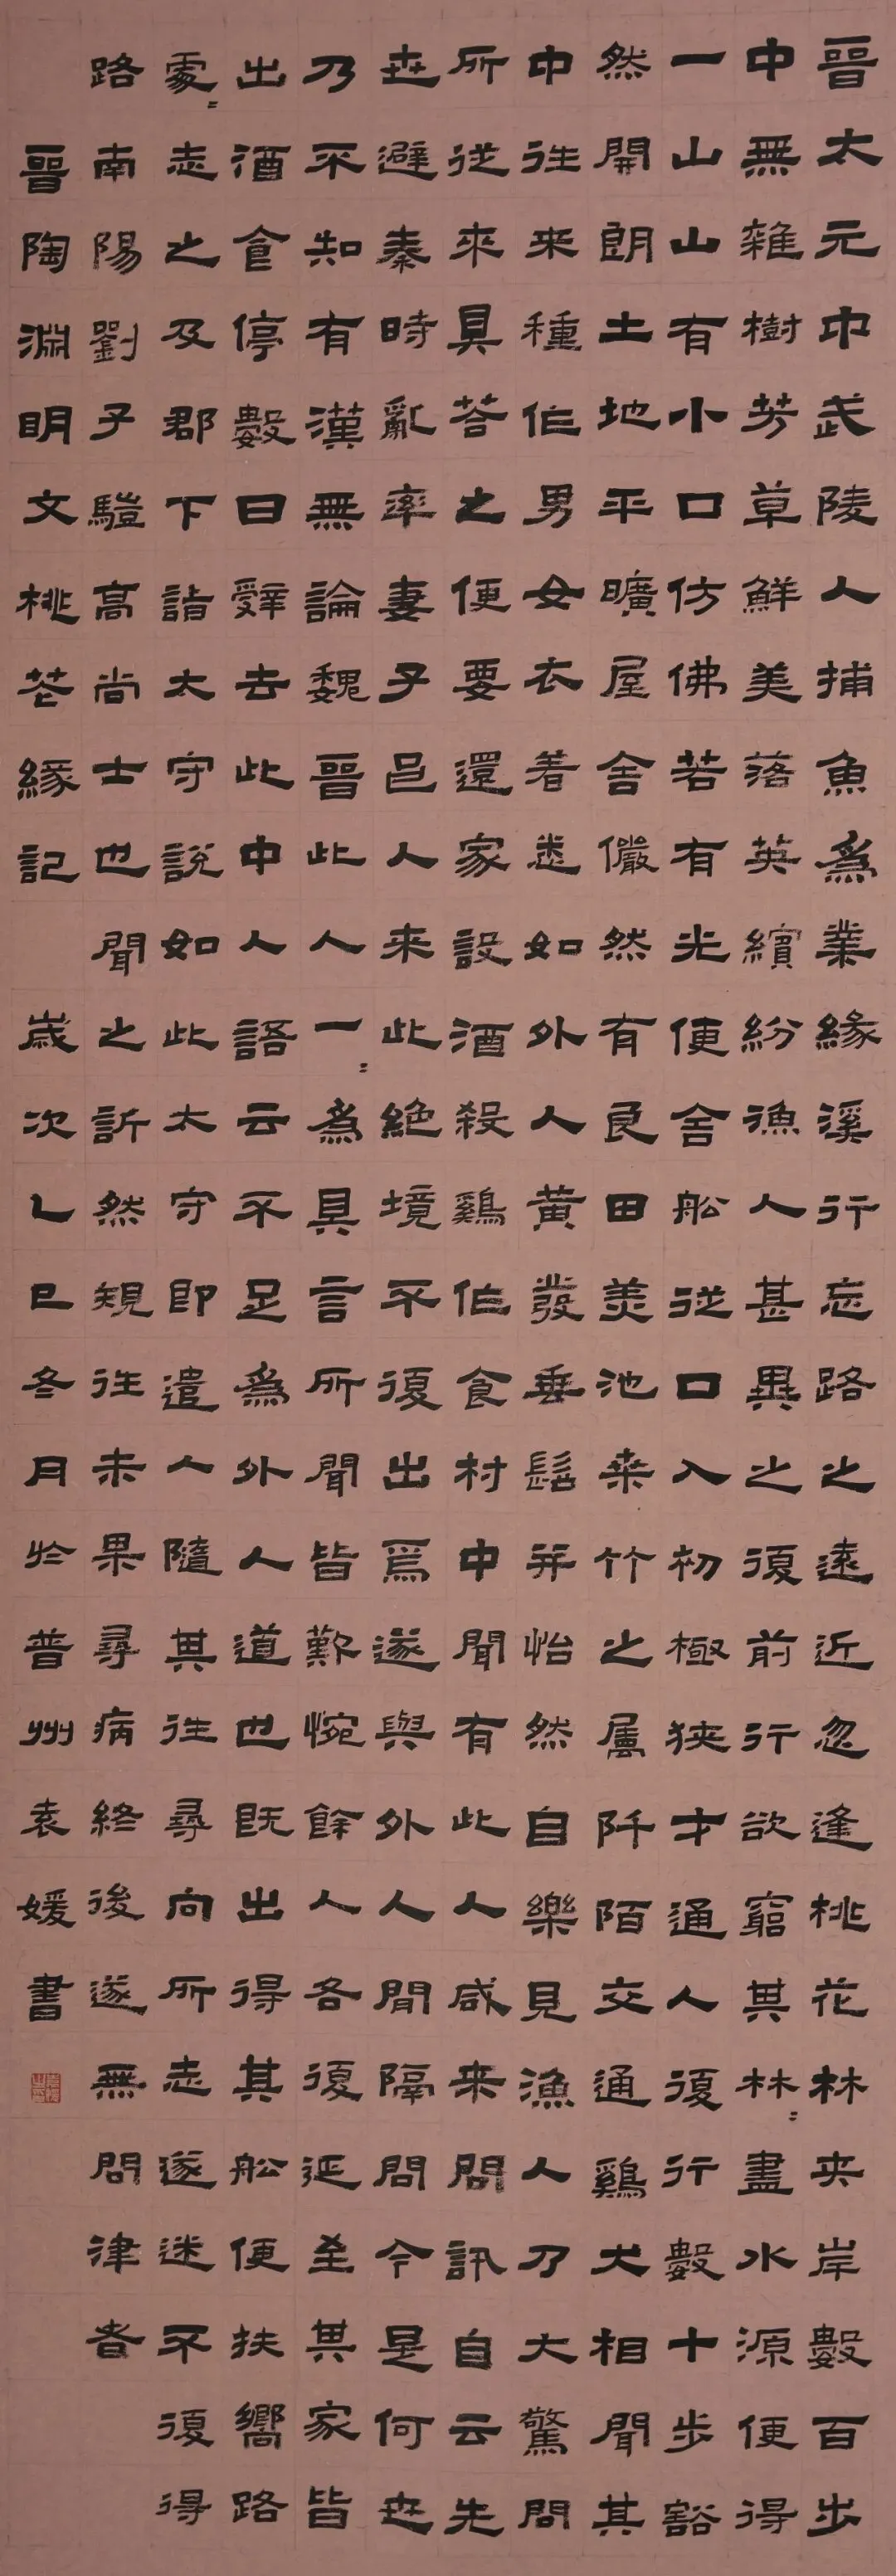 晉太元中武陵人捕魚為業緣溪行忘路之遠近忽逢桃花林夾岸數百步
中無雜樹芳草鮮美落英繽紛漁人甚異之復前行欲窮其林〻盡水源便得
一山山有小口仿佛若有光便舍船從口入初極狹才通人復行數十步豁
然開朗土地平曠屋舍儼然有良田美池桑竹之屬阡陌交通鷄犬相聞其
中往來種作男女衣着悉如外人黃發垂髫并怡然自樂見漁人乃大驚問
所從來具答之便要還家設酒殺鷄作食村中聞有此人咸來問訊自云先
世避秦時亂率妻子邑人來此絕境不復出焉遂與外人間隔問今是何世
乃不知有漢無論魏晉此人一〻為具言所聞皆歎惋餘人各復延至其家皆
出酒食停數日辭去此中人語云不足為外人道也既出得其船便扶嚮路
處〻志之及郡下詣太守說如此太守即遣人隨其往尋向所志遂迷不復得
路南陽劉子驥高尚士也聞之訢然規往未果尋病終後遂無問津者
晉陶淵明文桃芲緣記 歲次乙巳冬月於普州袁媛書